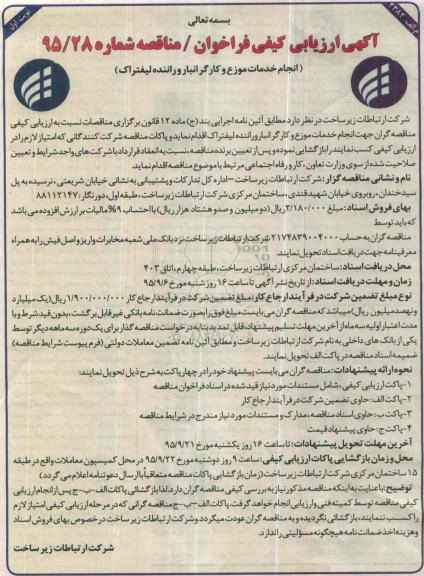 بسمه تعالی
نوبت اول
آگهی ارزیابی کیفی فراخوان / مناقصه شماره ۹۵/۲۸
(انجام خدمات موزع و کارگر انبار و راننده لیفتراک)
شرکت ارتباطات زیرساخت در نظر دارد مطابق آئین نامه اجرایی بند (ج) ماده ۱۲ قانون برگزاری مناقصات نسبت به ارزیابی کیفی
مناقصه گران جهت انجام خدمات موزع و کارگر انبار و راننده لیفتراک اقدام نماید و پاکات مناقصه شرکت کنندگانی که امتیاز لازم را در
ارزیابی کیفی کسب نمایند را بازگشایی نموده و پس از تعیین برنده مناقصه، نسبت به انعقاد قرارداد با شرکت های واجد شرایط و تعیین
صلاحیت شده از سوی وزارت تعاون، کار و رفاه اجتماعی مرتبط با موضوع مناقصه اقدام نماید.
نام و نشانی مناقصه گزار: شرکت ارتباطات زیرساخت – اداره کل تدارکات و پشتیبانی به نشانی خیابان شریعتی، نرسیده به پل
سیدخندان، روبروی خیابان شهید قندی، ساختمان مرکزی شرکت ارتباطات زیرساخت، طبقه اول، دورنگار: ۸۸۱۱۲۱۴۷
بهای فروش اسناد: مبلغ ۲/۱۸۰/۰۰۰ ریال (دو میلیون و صد و هشتاد هزار ریال) با احتساب ۹% مالیات بر ارزش افزوده می باشد
که باید توسط
مناقصه گران به حساب ۲۱۷۴۸۳۹۰۰۴۰۰۰ شرکت ارتباطات زیرساخت نزد بانک ملی شعبه مخابرات واریز و اصل فیش را به همراه
معرفینامه جهت دریافت اسناد تحویل نمایند.
محل دریافت اسناد: ساختمان مرکزی ارتباطات زیرساخت، طبقه چهارم، اتاق ۴۰۳
زمان و مهلت دریافت اسناد: از تاریخ نشر آگهی تا ساعت ۱۶ روز شنبه مورخ ۹۵/۹/۶
نوع مبلغ تضمین شرکت در فرآیند ارجاع کار: مبلغ تضمین شرکت در فرآیند ارجاع کار ۱/۹۰۰/۰۰۰/۰۰۰ ریال (یک میلیارد
و نهصد میلیون ریال) میباشد که مناقصه گران می بایست مبلغ فوق را بصورت ضمانت نامه بانکی غیر قابل برگشت، بدون قید شرط و با
مدت اعتبار اولیه سه ماه از آخرین مهلت تسلیم پیشنهاد، قابل تمدید بنا به درخواست مناقصه گذار برای یک دوره سه ماهه دیگر توسط
یکی از بانک های داخلی به نام شرکت ارتباطات زیرساخت و مطابق آئین نامه تضمین معاملات دولتی (فرم پیوست شرایط مناقصه)
ضمیمه اسناد مناقصه در پاکت الف تحویل نمایند.
نحوه ارائه پیشنهادات: مناقصه گران می بایست پیشنهاد خود را در چهار پاکت به شرح ذیل تحویل نمایند:
۱- پاکت ارزیابی کیفی، شامل مستندات مورد نیاز قید شده در اسناد فراخوان مناقصه
۲- پاکت الف: حاوی تضمین شرکت در فرآیند ارجاع کار
۳- پاکت ب: حاوی اسناد مناقصه، مدارک و مستندات مورد نیاز مندرج در شرایط مناقصه
۴- پاکت ج: حاوی پیشنهاد قیمت
آخرین مهلت تحویل پیشنهادات: تا ساعت ۱۶ روز یکشنبه مورخ ۹۵/۹/۲۱
محل و زمان بازگشایی پاکات ارزیابی کیفی: ساعت ۹ روز دوشنبه مورخ ۹۵/۹/۲۲ در محل کمیسیون معاملات واقع در طبقه
۱۵ ساختمان مرکزی شرکت ارتباطات زیرساخت (زمان بازگشایی پاکات مناقصه متعاقباً با ارسال دعوتنامه اعلام می گردد)
توضیح: با عنایت به اینکه مناقصه مذکور نیاز به بررسی کیفی مناقصه گران دارد لذا بازگشایی پاکات الف-ب-ج پس از انجام ارزیابی
کیفی مناقصه توسط کمیته فنی و ارزیابی انجام خواهد گرفت. پاکات الف-ب-ج مناقصه گرانی که در مرحله ارزیابی کیفی امتیاز لازم
را کسب ننمایند، بازگشائی نگردیده و به مناقصه گران عودت میگردد و شرکت ارتباطات زیرساخت در خصوص بهای فروش اسناد
و هزینه اخذ ضمانت نامه هیچگونه مسؤلیتی را ندارد.
شرکت ارتباطات زیرساخت